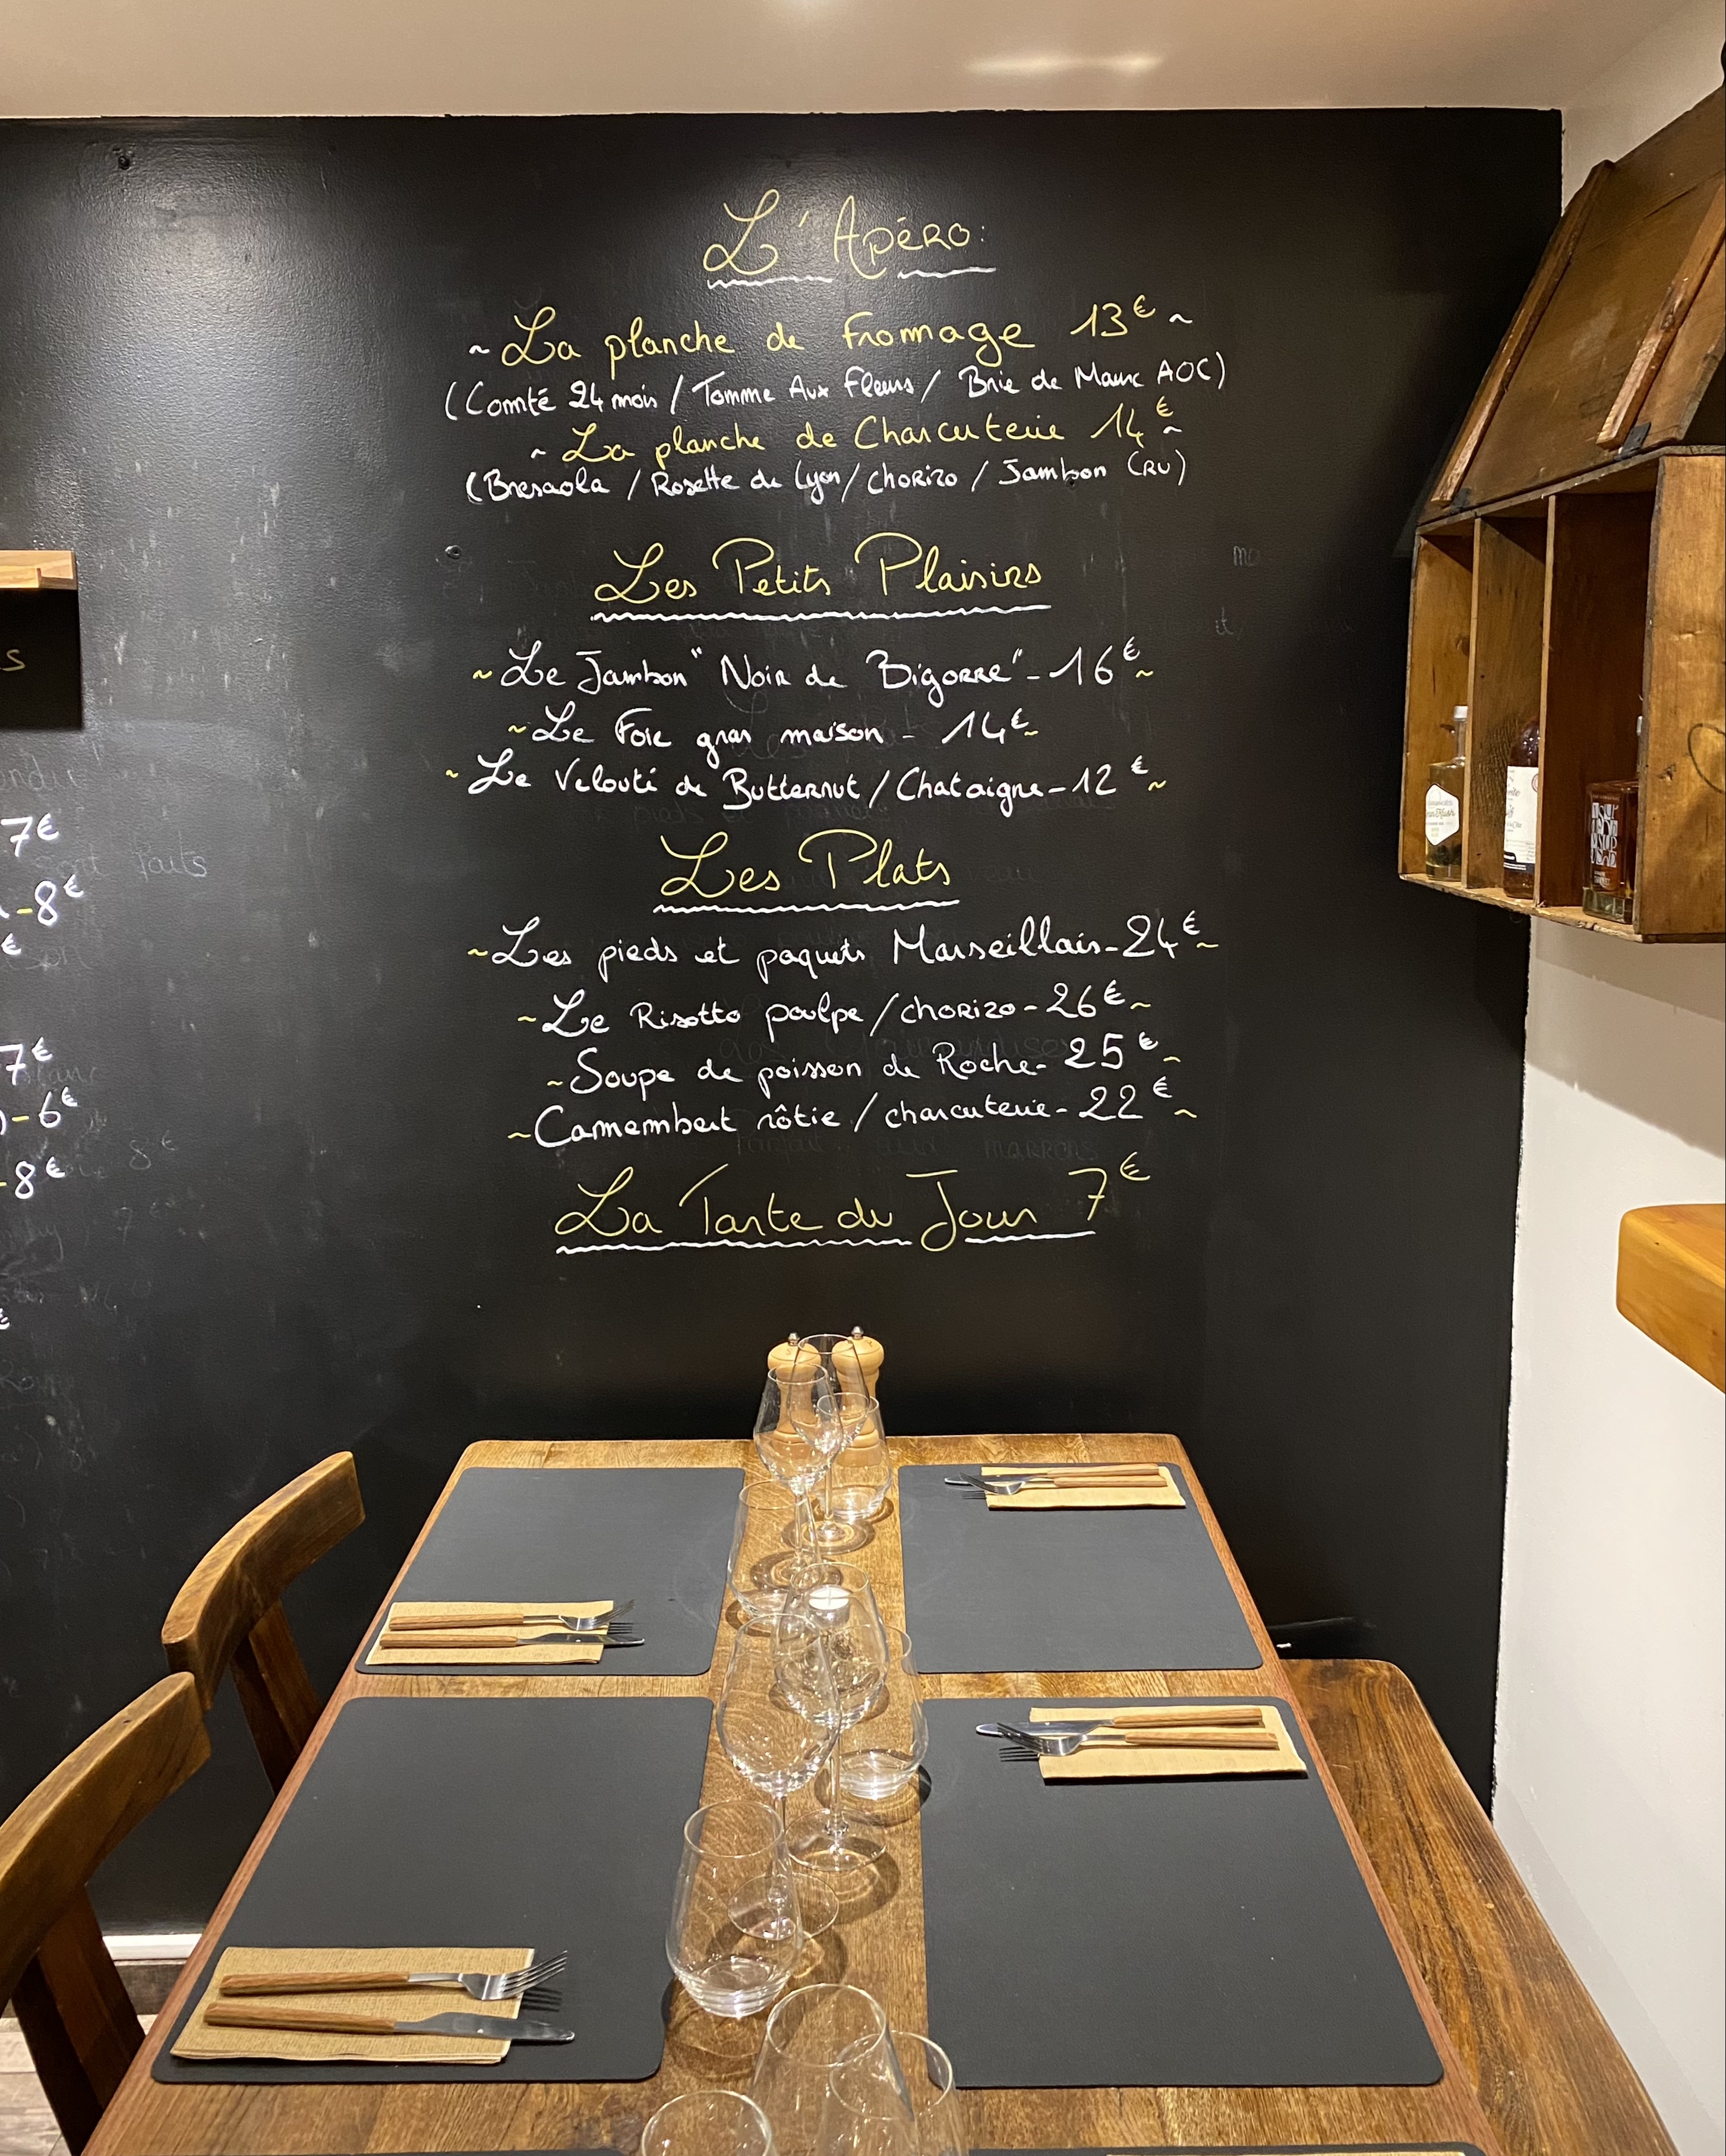 L'Apéro:
~ La planche de fromage 13€ ~
(Comté 24 mois / Tomme Aux fleurs / Brie de Maux AOC)
~ La planche de Charcuterie 14€ ~
(Bresaola / Rosette de Lyon / Chorizo / Jambon CRU)
Les Petits Plaisirs
~ Le Jambon "Noir de Bigorre" - 16€ ~
~ Le Foie gras maison - 14€ ~
~ Le Velouté de Butternut / Chataigne - 12€ ~
Les Plats
~ Les pieds et paquets Marseillais - 24€ ~
~ Le Risotto poulpe / chorizo - 26€ ~
~ Soupe de poisson de Roche - 25€ ~
~ Camembert rôtie / charcuterie - 22€ ~
La Tarte du Jour 7€
s
7€
sont faits
-8€
€
7€
-6€
-8€
€